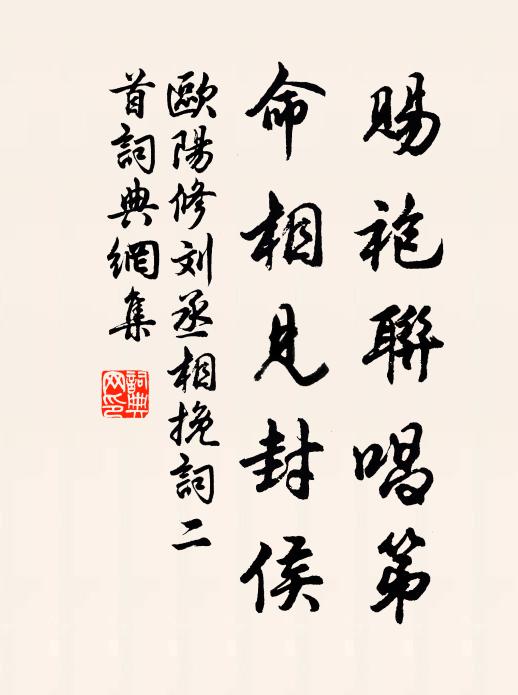 賜袍聯唱第
命相見封侯
歐陽修刘丞相挽詞二
首詞典網集
詞典
网印